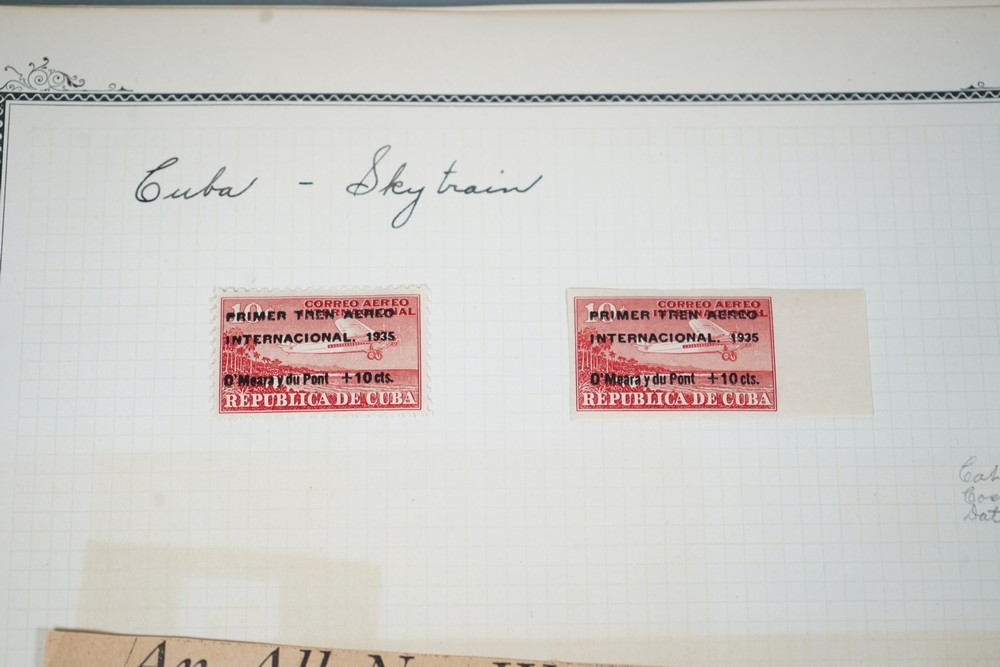 Cuba - Skytrain
10 CORREO AEREO
INTERNACIONAL
PRIMER TREN AEREO
INTERNACIONAL. 1935
O'Meara y du Pont +10 cts.
REPUBLICA DE CUBA
10 CORREO AEREO
INTERNACIONAL
PRIMER TREN AEREO
INTERNACIONAL. 1935
O'Meara y du Pont +10 cts.
REPUBLICA DE CUBA
An All